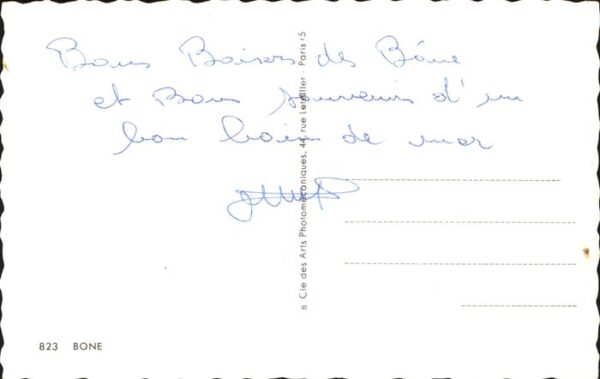 Bons Baisers de Bône
et Bons souvenirs d'un
bon bain de mer
8 Cie des Arts Photomécaniques, 44, rue Letellier - Paris 15
823 BONE